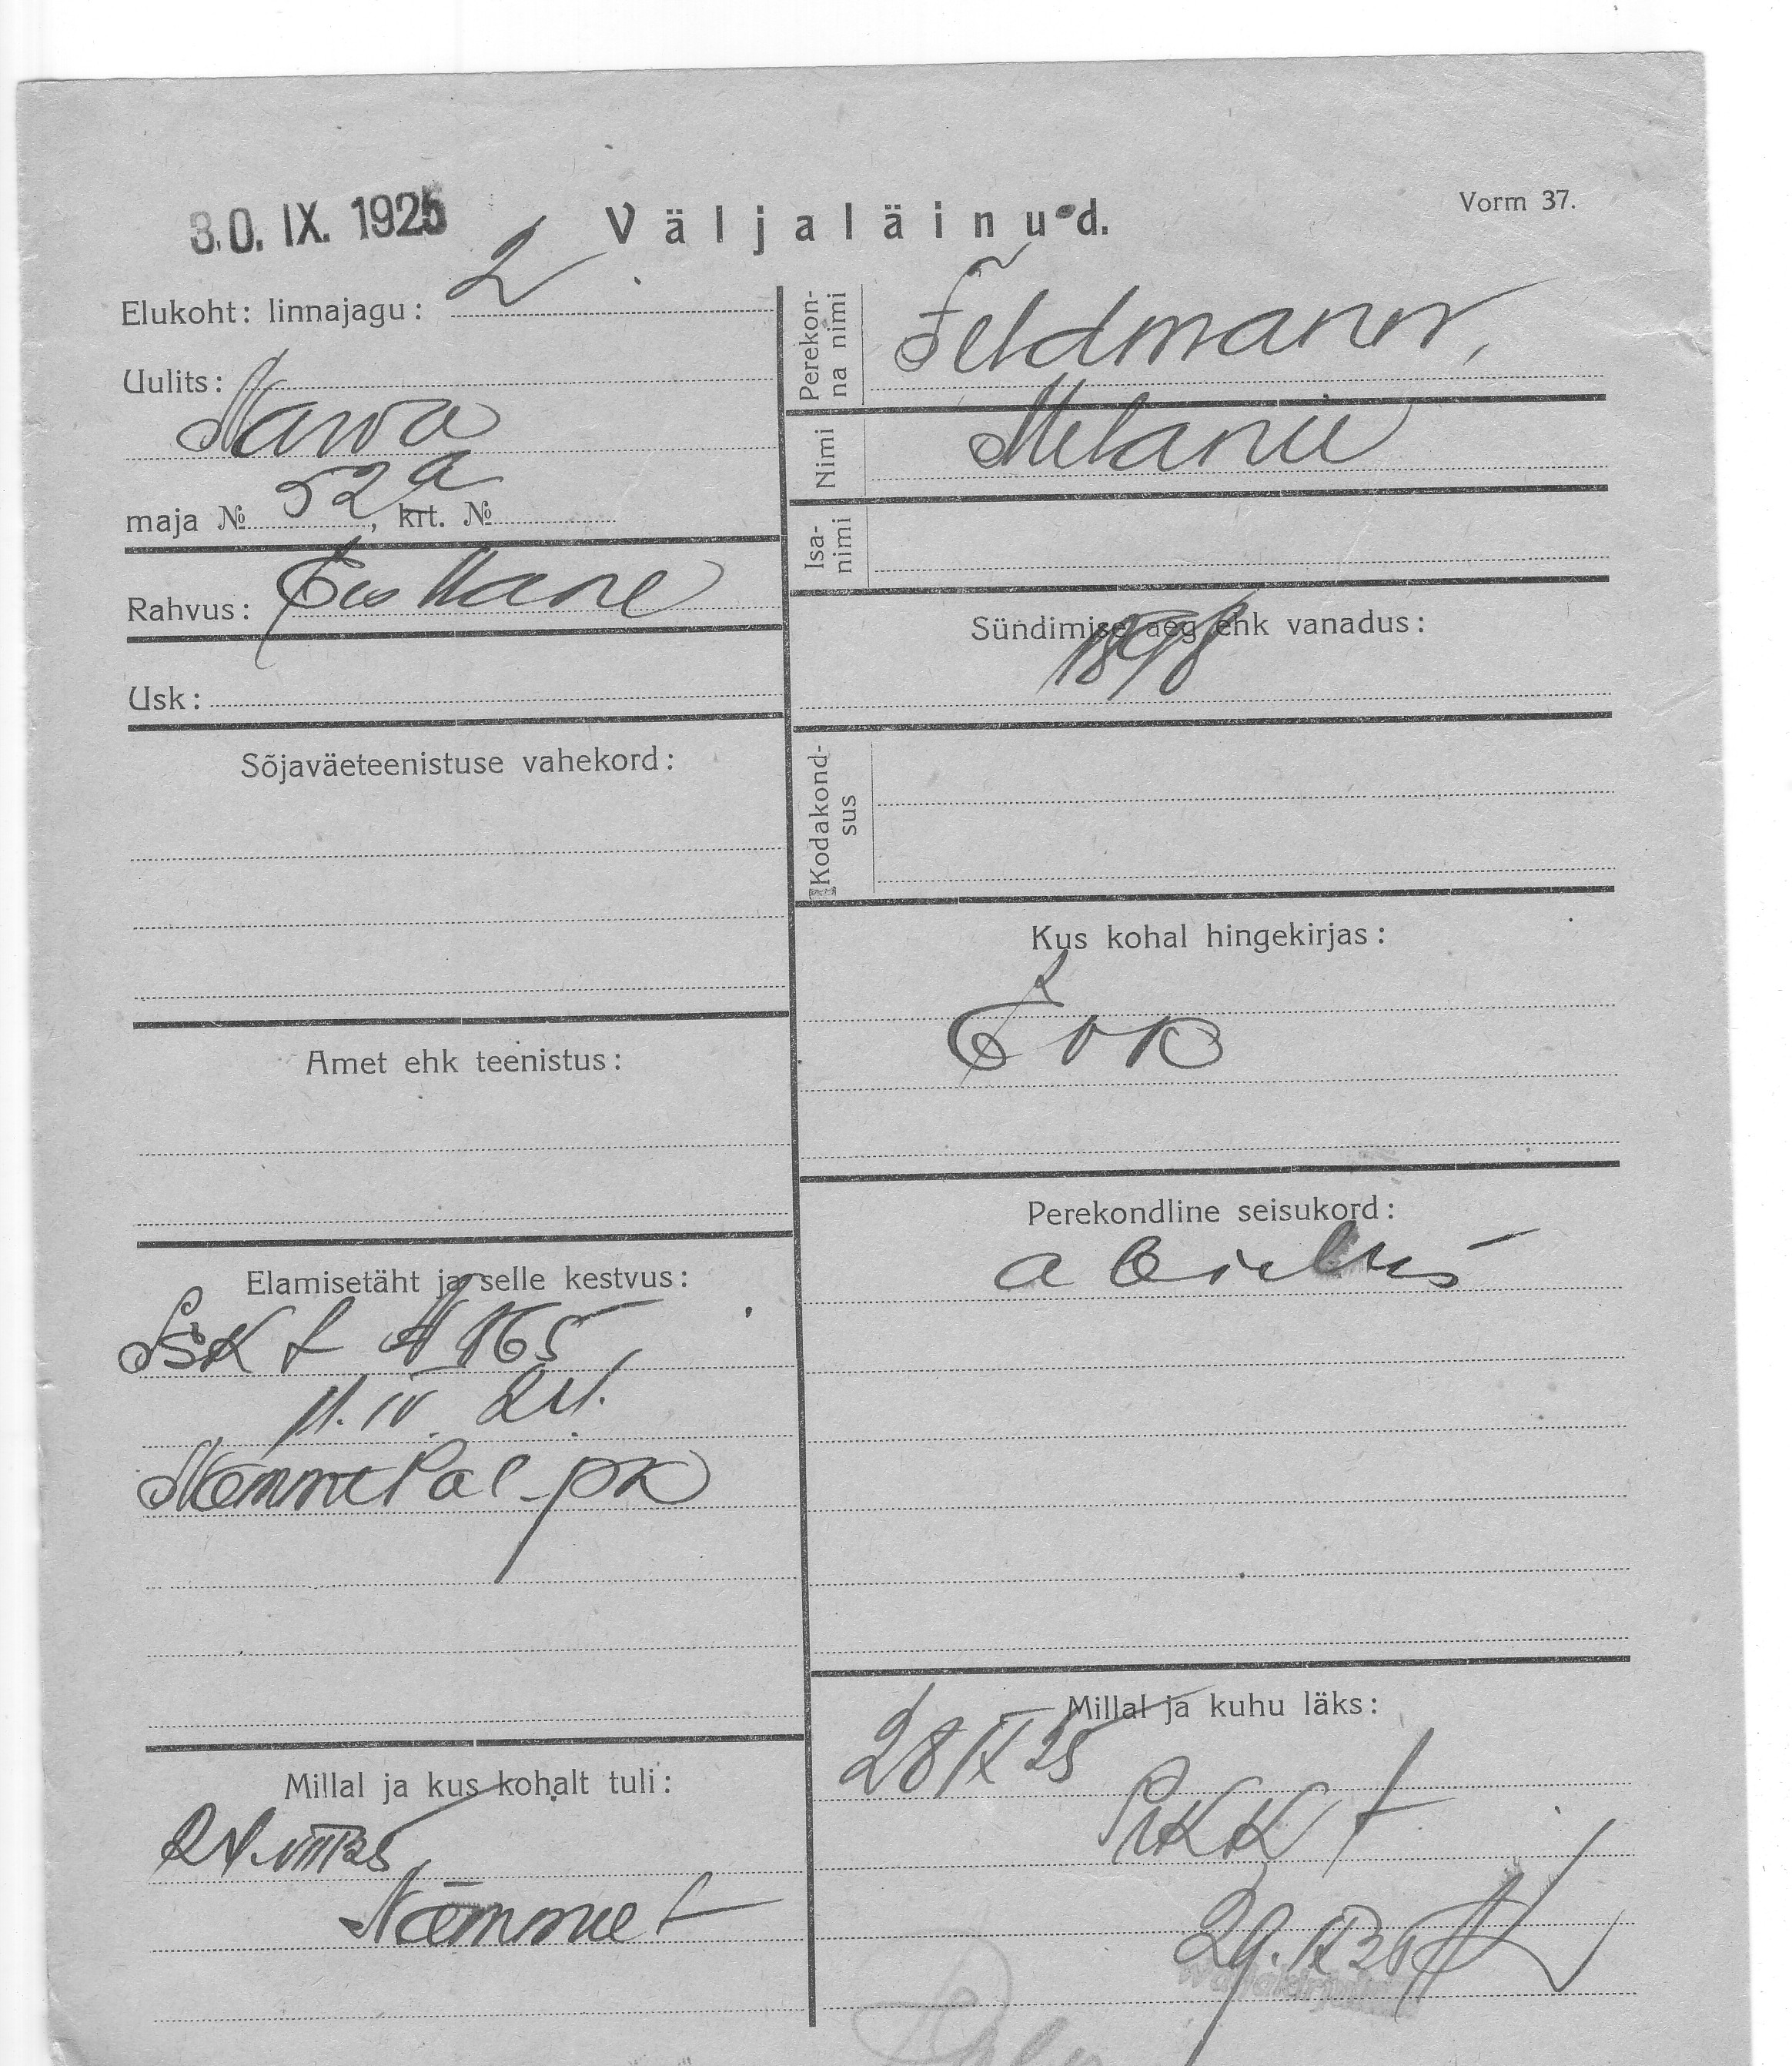 30. IX. 1925
Väljaläinud.
Vorm 37.
Elukoht: linnajagu: 2
Uulits:
Narva
maja № 52a, krt. №
Rahvus: Eestlane
Usk:
Sõjaväeteenistuse vahekord:
Amet ehk teenistus:
Elamisetäht ja selle kestvus:
11. IV
Nõmme Pol. pk
Millal ja kus kohalt tuli:
24. VIII 25
Nõmme
Perekon-
na nimi
Feldmann,
Nimi
Melanie
Isa-
nimi
Sündimise aeg ehk vanadus:
1898
Kodakond-
sus
Kus kohal hingekirjas:
Perekondline seisukord:
abielus
Millal ja kuhu läks:
28 IX 25
29. IX